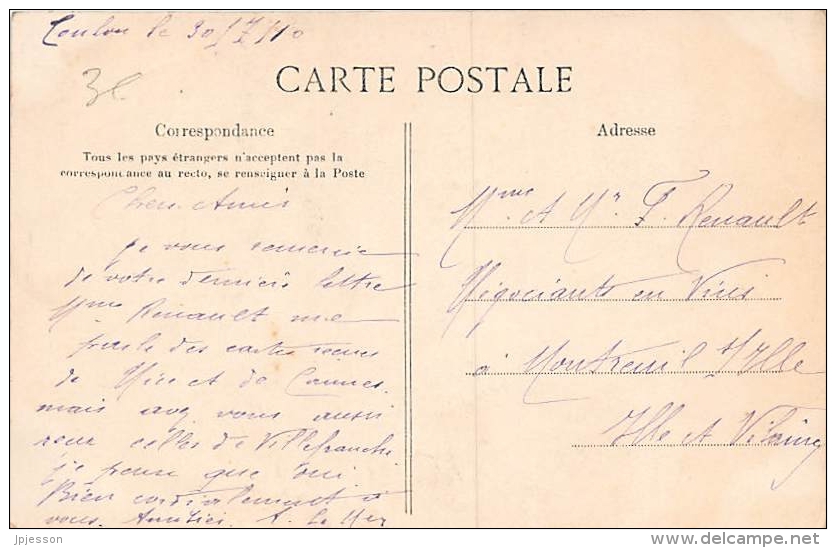 Toulon le 30/7/10
3e
CARTE POSTALE
Correspondance
Tous les pays étrangers n'acceptent pas la
correspondance au recto, se renseigner à la Poste
Chers Amis
je vous remercie
de votre dernière lettre
Mme Renault me
parle des cartes reçues
de Nice et de Cannes.
mais avez vous aussi
reçu celles de Villefranche
je pense que oui
Bien cordialement à
vous. Amitiés. A. Le
Adresse
Mme et Mr F. Renault
Négociants en Vins
à Montreuil s/ Ille
Ille et Vilaine
jpjesson
delcampe.net